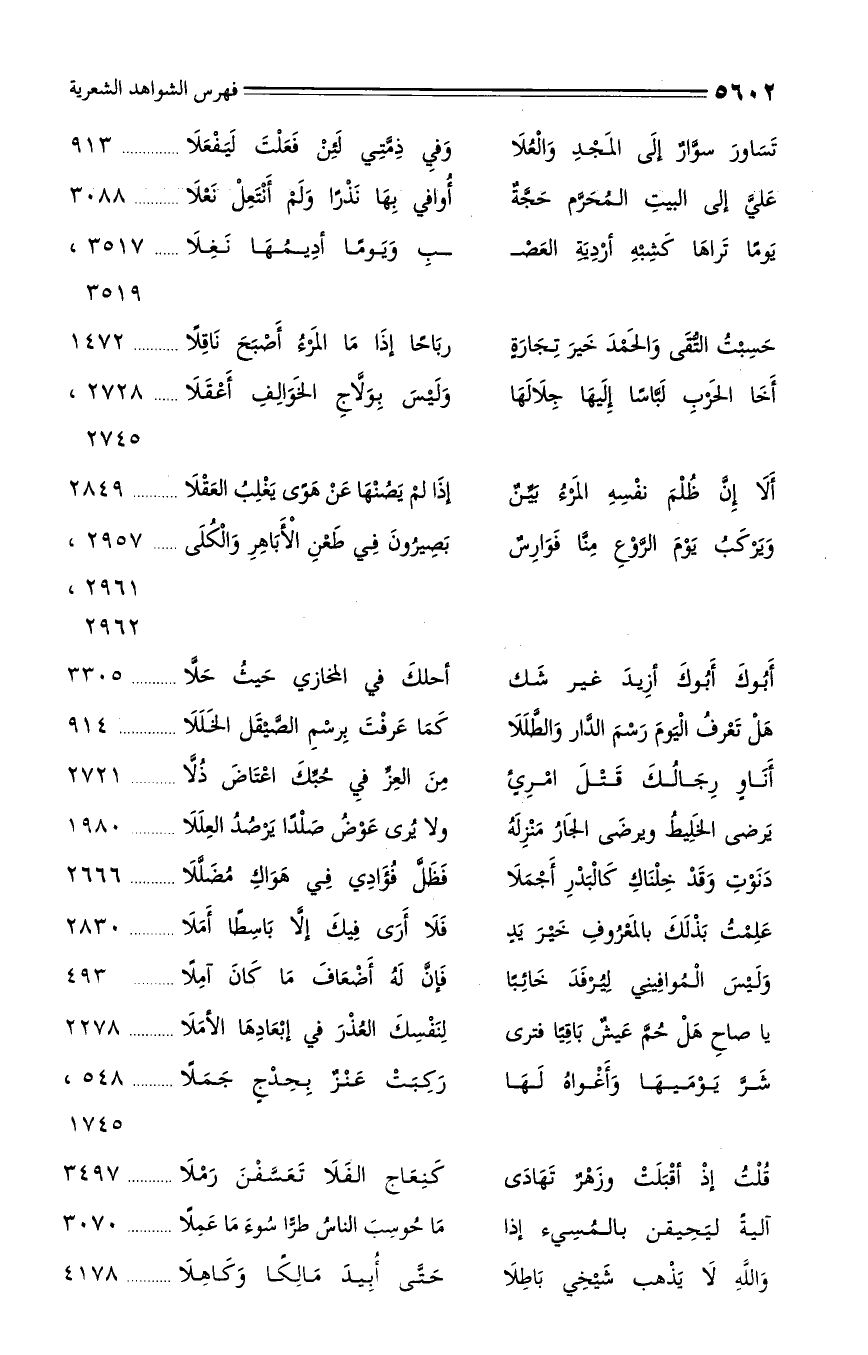 ٥٦٠٢ فهرس الشواهد الشعرية
تَسَاورَ سوَّارٌ إلَى المَجْدِ وَالْعُلَا وَفي ذِمَّتِي لَئِنْ فَعَلْتَ لَيَفْعَلَا ............. ٩١٣
عَليَّ إلى البيتِ المُحَرَّم حَجَّةٌ أُوافي بِهَا نَذْرًا وَلَمْ أَنْتَعِلْ نَعْلَا .......... ٣٠٨٨
يَومًا تَراهَا كَشِبْهِ أرْدِيَةِ العَصْـ ـبِ وَيَومًا أدِيمُهَا نَغِلَا ...... ٣٥١٧ ،
٣٥١٩
حَسِبْتُ التُّقَى وَالحَمْدَ خَيرَ تِجَارَةٍ ربَاحًا إذَا مَا المَرْءُ أَصْبَحَ نَاقِلًا ........... ١٤٧٢
أَخَا الحَرْبِ لَبَّاسًا إلَيهَا جِلَالَهَا وَلَيْسَ بِوَلَّاجِ الخَوَالِفِ أَعْقَلَا ...... ٢٧٢٨ ،
٢٧٤٥
أَلَا إِنَّ ظُلْمَ نفْسِهِ المَرْءُ بَيِّنٌ إذَا لمْ يَصُنْهَا عَنْ هَوًى يَغْلِبُ العَقْلَا ........... ٢٨٤٩
وَيَرْكَبُ يَوْمَ الرَّوْعِ مِنَّا فَوَارِسٌ بَصِيرُونَ فِي طَعْنِ الْأَبَاهِرِ وَالْكُلَى ...... ٢٩٥٧ ،
٢٩٦١ ،
٢٩٦٢
أَبُوكَ أَبُوكَ أزِيدَ غير شَك أحلكَ في المخازي حَيثُ حَلَّا ........... ٣٣٠٥
هَلْ تَعْرفُ الْيَومَ رَسْمَ الدَّار وَالطَّلَلَا كَمَا عَرفْتَ بِرسْمِ الصَّيْقَل الخَلَلَا .............. ٩١٤
أَنَاوٍ رِجَالُكَ قَتْلَ امْرِئٍ مِنَ العِزِّ فِي حُبِّكَ اعْتَاضَ ذُلَّا ........... ٢٧٢١
يَرضى الخَلِيطُ ويرضَى الجَارُ مَنْزِلَهُ ولا يُرى عَوْضُ صَلْدًا يَرْصُدُ العِلَلَا ........... ١٩٨٠
دَنَوْتِ وَقَدْ خِلْنَاكِ كَالْبَدْرِ أَجْمَلَا فَظَلَّ فُؤَادِي فِي هَوَاكِ مُضَلَّلَا ........... ٢٦٦٦
عَلِمْتُ بَذْلَكَ بالمَعْرُوفِ خَيْرَ يَدٍ فَلَا أَرَى فِيكَ إلَّا بَاسِطًا أَمَلَا ........... ٢٨٣٠
وَلَيْسَ الْمُوافِينِي لِيُرْفَدَ خَائِبًا فَإِنَّ لَهُ أَضْعَافَ مَا كَانَ آمِلًا .......... ٤٩٣
يا صاحِ هَلْ حُمَّ عَيشٌ بَاقِيًا فترى لِنَفْسِكَ العُذْرَ في إبْعَادِهَا الأمَلَا ........... ٢٢٧٨
شَرَّ يَوْمَيهَا وَأَغْواهُ لَهَا رَكِبَتْ عَنْزٌ بِحِدْجٍ جَمَلًا .......... ٥٤٨ ،
١٧٤٥
قُلْتُ إذْ أقْبَلَتْ وزَهْرٌ تَهَادَى كَنِعَاج الفَلَا تَعَسَّفْنَ رَمْلَا ........... ٣٤٩٧
آليةً ليَحِيقن بالمُسِيء إذا مَا حُوسِبَ الناسُ طرًّا سُوءَ مَا عَمِلًا ........... ٣٠٧٠
وَاللَّهِ لَا يَذْهب شَيْخِي بَاطِلَا حَتَّى أُبِيدَ مَالِكًا وَكَاهِلَا ........... ٤١٧٨